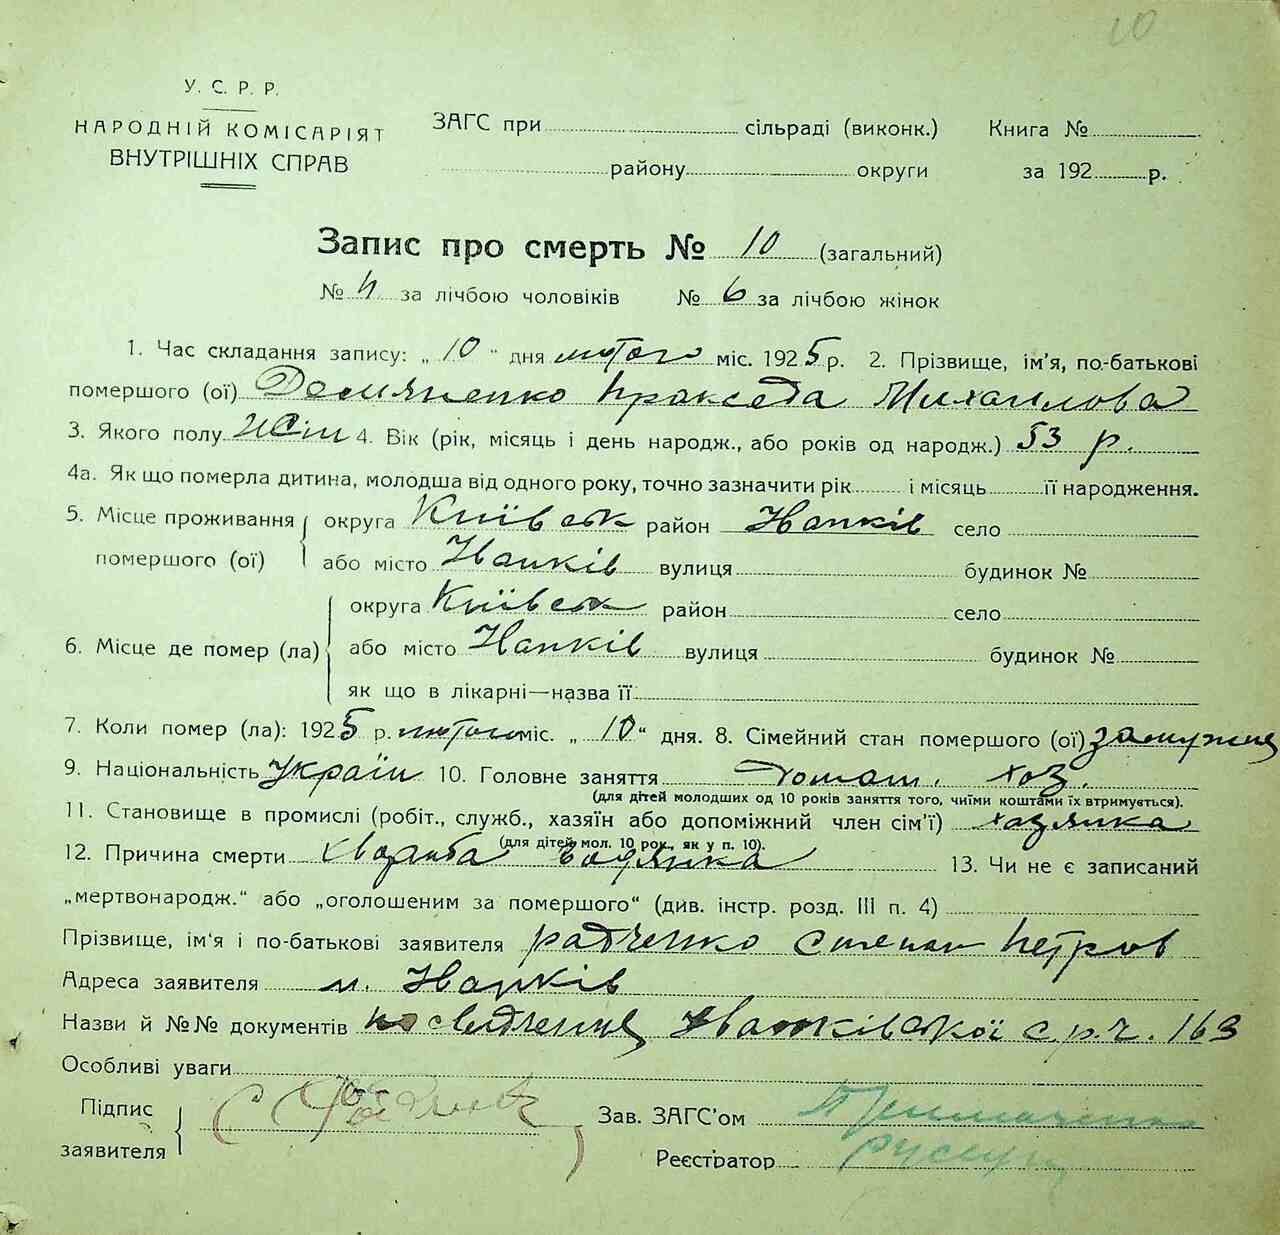 10
У. С. Р. Р.
НАРОДНІЙ КОМІСАРІЯТ
ВНУТРІШНІХ СПРАВ
ЗАГС при сільраді (виконк.) Книга №
району округи за 192 р.
Запис про смерть № 10 (загальний)
№ 4 за лічбою чоловіків № 6 за лічбою жінок
1. Час складання запису: „ 10 " дня лютого міс. 1925 р. 2. Прізвище, ім'я, по-батькові
помершого (ої) Демяненко Пракседа Михаилова
3. Якого полу жін 4. Вік (рік, місяць і день народж., або років од народж.) 53 р.
4а. Як що померла дитина, молодша від одного року, точно зазначити рік і місяць її народження.
5. Місце проживання помершого (ої) округа Київськ район Іванків село
або місто Іванків вулиця будинок №
6. Місце де помер (ла) округа Київськ район село
або місто Іванків вулиця будинок №
як що в лікарні—назва її
7. Коли помер (ла): 1925 р. лютого міс. „ 10 " дня. 8. Сімейний стан помершого (ої) замужня
9. Національність Україн 10. Головне заняття домаш. хоз.
(для дітей молодших од 10 років заняття того, чиїми коштами їх втримується).
11. Становище в промислі (робіт., служб., хазяїн або допоміжний член сім'ї) хазяйка
(для дітей мол. 10 рок., як у п. 10).
12. Причина смерти водянка 13. Чи не є записаний
„мертвонародж." або „оголошеним за помершого" (див. інстр. розд. III п. 4)
Прізвище, ім'я і по-батькові заявителя Радченко Степан Петров
Адреса заявителя м. Іванків
Назви й №№ документів посвідчення Іванківської с.р. ч. 163
Особливі уваги
Підпис заявителя
Зав. ЗАГС'ом
Реєстратор